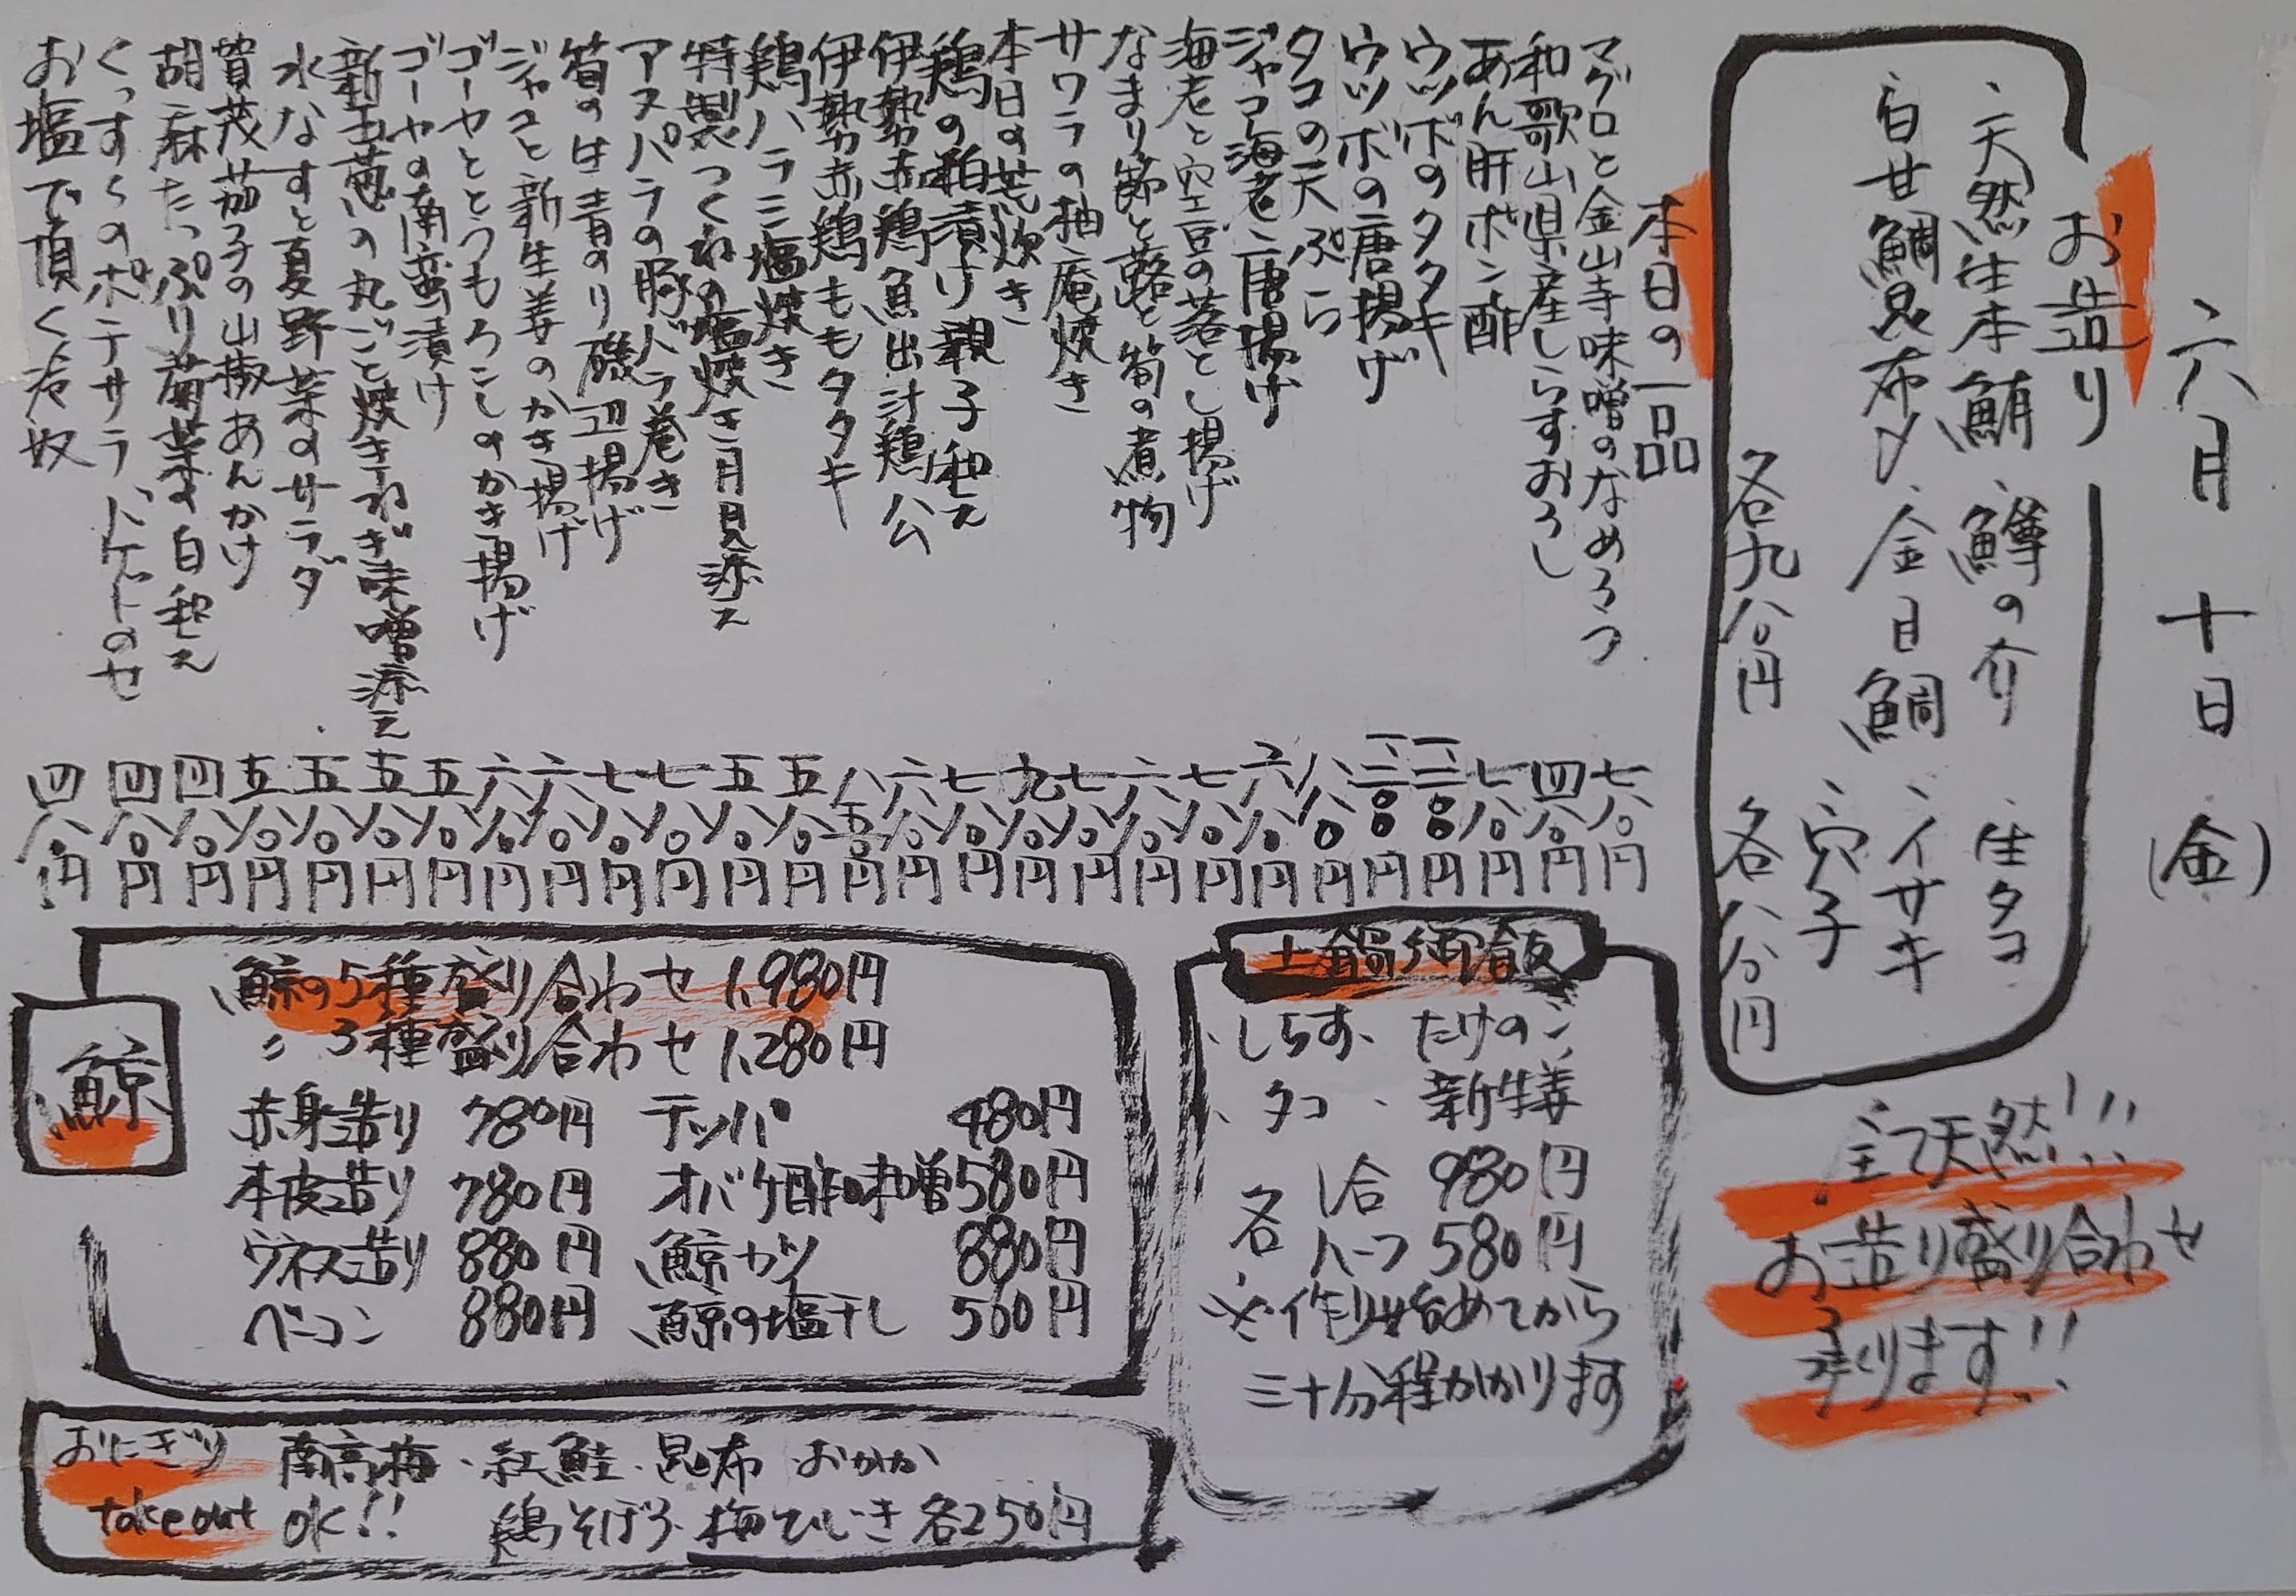 六月十日(金)
お造り
、天然生本鮪 、鱒の介 生タコ
、白甘鯛昆布〆 、金目鯛 、イサキ
、穴子
各九八〇円 各八八〇円
全て天然!!!
お造り盛り合わせ
承ります!!
本日の一品
マグロと金山寺味噌のなめろう 七八〇円
和歌山県産しらすおろし 四八〇円
あん肝ポン酢 七八〇円
ウツボのタタキ
ウツボの唐揚げ
タコの天ぷら 八八〇円
ジャコ海老の唐揚げ 六八〇円
海老と空豆の落とし揚げ 七八〇円
なまり節と蕗と筍の煮物 六八〇円
サワラの柚庵焼き 七八〇円
本日の荒炊き 九八〇円
鶏の粕漬け親子和え 七八〇円
伊勢赤鶏魚出汁鶏公 六八〇円
伊勢赤鶏ももタタキ 八五〇円
鶏ハラミ塩焼き 五八〇円
特製つくねの塩焼き月見添え 五八〇円
アスパラの豚バラ巻き 七八〇円
筍の生青のり磯辺揚げ 七八〇円
ジャコと新生姜のかき揚げ 六八〇円
ゴーヤととうもろこしのかき揚げ 六八〇円
ゴーヤの南蛮漬け 五八〇円
新玉葱の丸ごと焼きねぎ味噌添え 五八〇円
水なすと夏野菜のサラダ 五八〇円
賀茂茄子の山椒あんかけ 五八〇円
胡麻たっぷり菊菜の白和え 四八〇円
くっすくのポテサラ、バケットのせ 四八〇円
お塩で頂く冷奴 四八〇円
土鍋御飯
、しらす、 たけのこ
、タコ 、新生姜
各 1合 980円
ハーフ 580円
※作り始めてから
三十分程かかります
鯨
、鯨の5種盛り合わせ 1,980円
〃 3種盛り合わせ 1,280円
赤身造り 780円 テッパ 480円
本皮造り 780円 オバケ酢味噌 580円
ウネス造り 880円 鯨カツ 880円
ベーコン 880円 鯨の塩干し 560円
おにぎり 南高梅・紅鮭・昆布・おかか
takeout OK!! 鶏そぼろ・梅ひじき 各250円